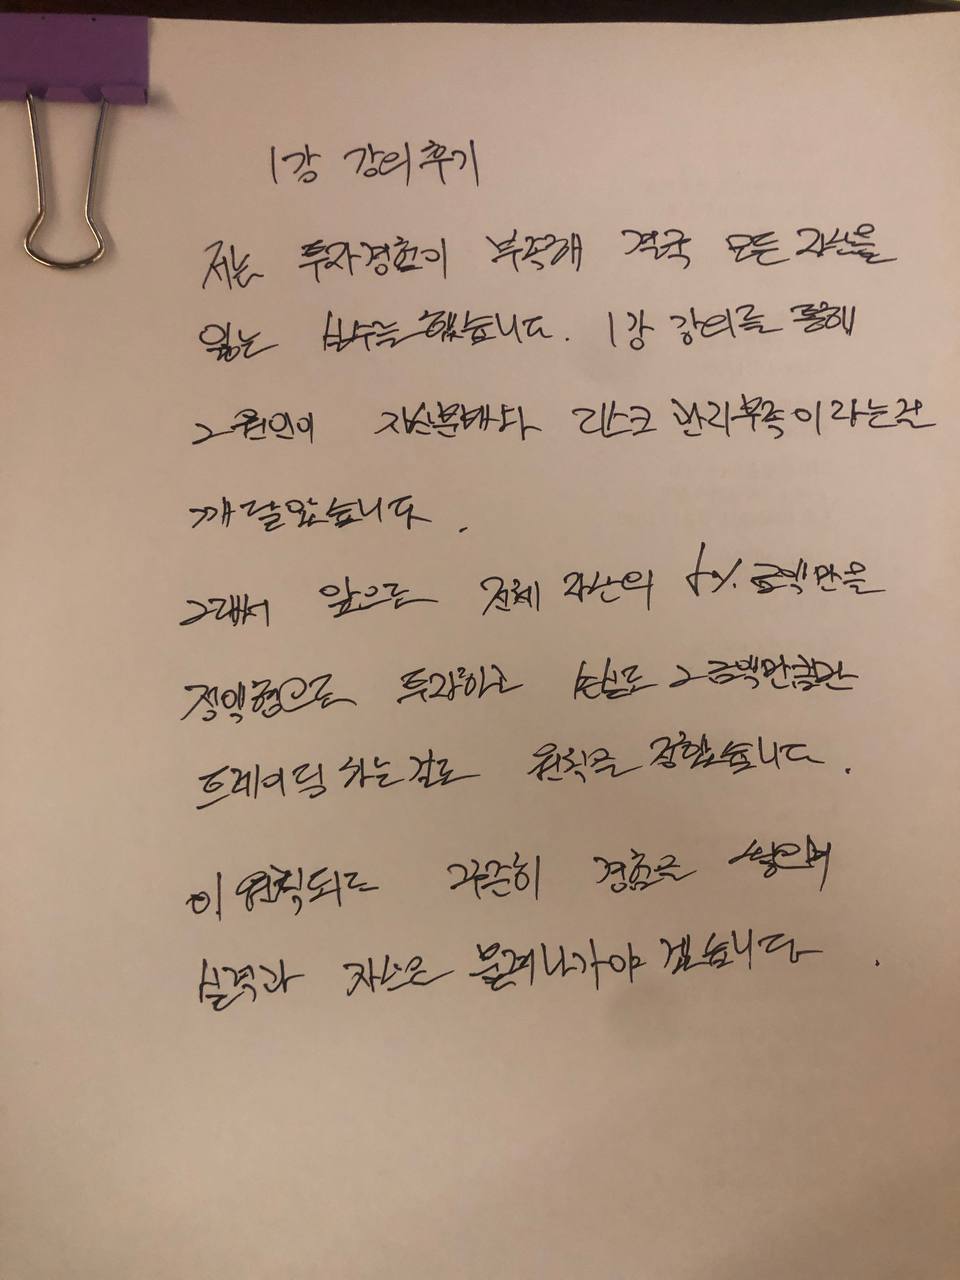 1강 강의후기
저는 투자경험이 부족해 결국 모든 자산을
잃는 실수를 했습니다. 1강 강의를 통해
그 원인이 자산분배와 리스크 관리부족이라는걸
깨달았습니다.
그래서 앞으로 전체 자산의 금액만을
정액형으로 투자하고 손실도 그 금액만큼만
트레이딩 하는걸로 원칙을 정했습니다.
이 원칙대로 꾸준히 경험을 쌓으며
실력과 자산을 불려나가야 겠습니다.